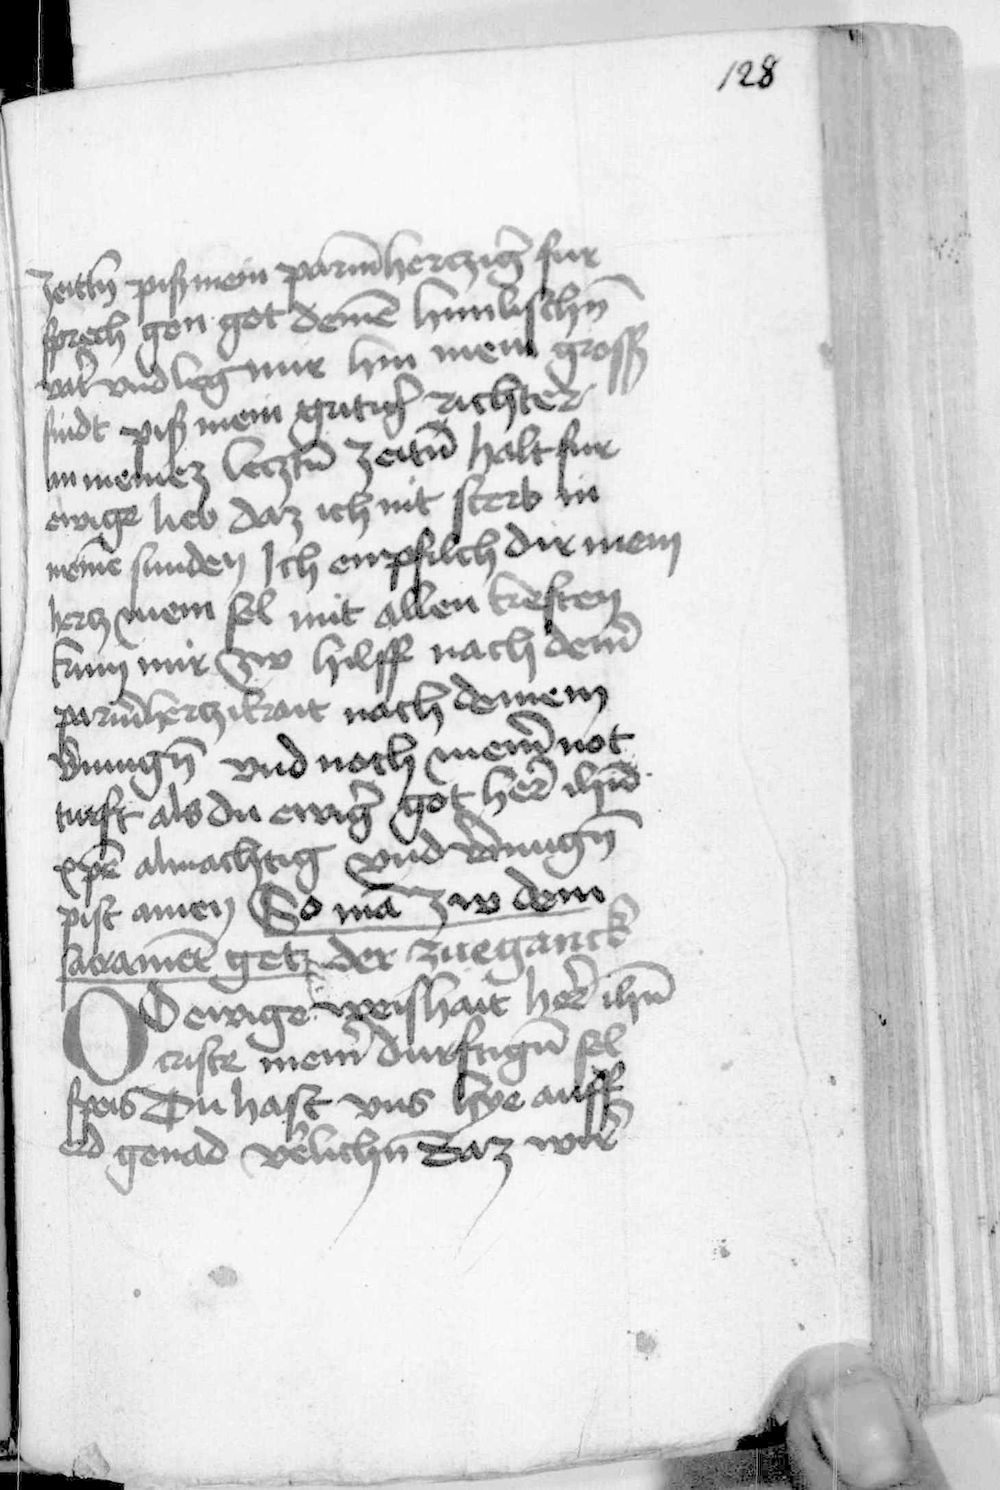 128
zeittn̄ piß mein parmh̄ercziger̄ fur
sprech gen got deinē himlischn̄
vatr̄ vnd leg mir hin mein groß
sündt piß mein gütiger̄ richter
in meinez lecztn̄ zeitn̄ halt fur
ewige lieb daz ich nit sterb in
meinē sunden Ich enpfilch dir mein
hercz mein sel mit allen kreften
kum mir zw hilff nach deinr̄
parmh̄erczikait nach deinem
vmugn̄ vnd noch meinr̄ not
turft als du ewiger̄ got her̄ ihū
xp̄e almachtig vnd vmugn̄
pist amen So mā zw dem
sacramēt get der zueganck
O D ewige weishait her̄ ihū
criste meinr̄ durftign̄ sel
speis Du hast vns hye auff
erd genad v̄lichn̄ Daz wir